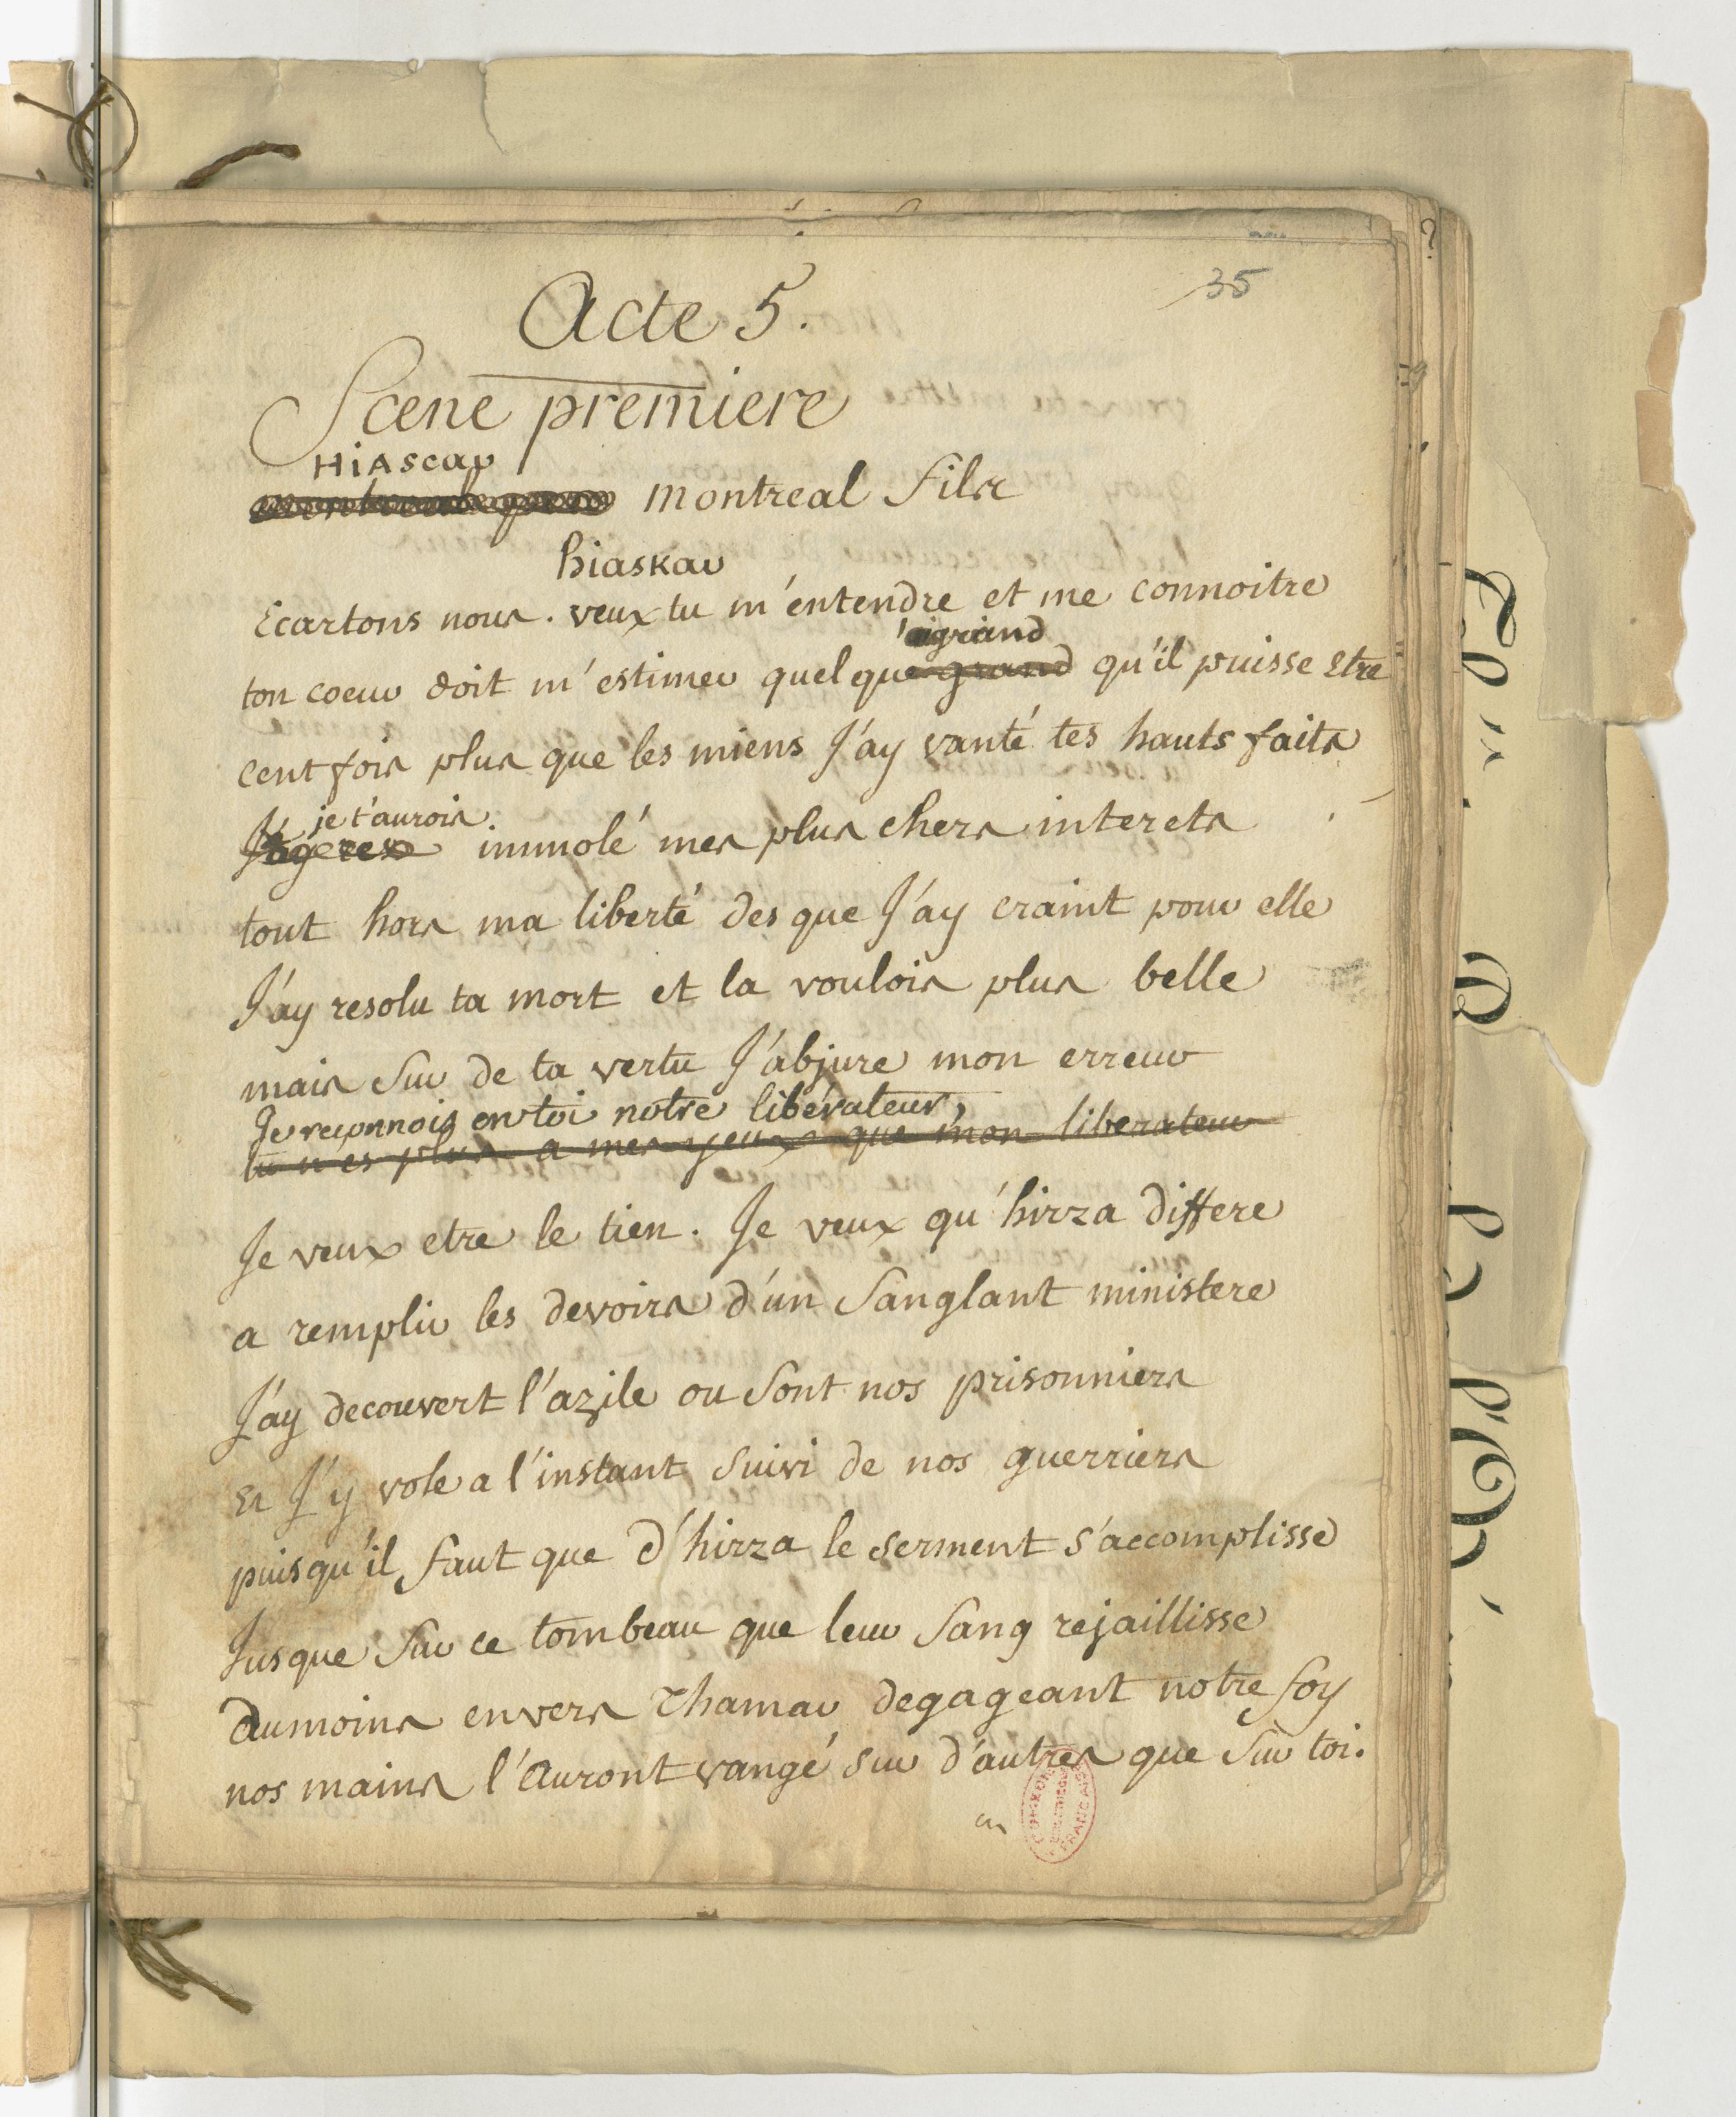 35
Acte 5.
Scene premiere
HiAscar
montreal fils
hiaskar
Ecartons nous. veux tu m'entendre et me connoitre
aigrand
ton coeur doit m'estimer quelque grand qu'il puisse Etre
cent fois plus que les miens J'ay vanté tes hauts faits
je t'aurois
immolé mes plus chers interets
tout hors ma liberté des que J'ay craint pour elle
J'ay resolu ta mort et la voulois plus belle
mais sur de ta vertu J'abjure mon erreur
Je reconnois en toi notre libérateur,
tu n'es plus a mes yeux que mon liberateur
Je veux etre le tien. Je veux qu'hirza differe
a remplir les devoirs d'un sanglant ministere
J'ay decouvert l'azile ou sont nos prisonniers
Et J'y vole a l'instant suivi de nos guerriers
puisqu'il faut que d'hirza le serment s'accomplisse
Jusque sur ce tombeau que leur sang rejaillisse
Aumoins envers Thamar degageant notre foy
nos mains l'Auront vangé sur d'autres que sur toi.